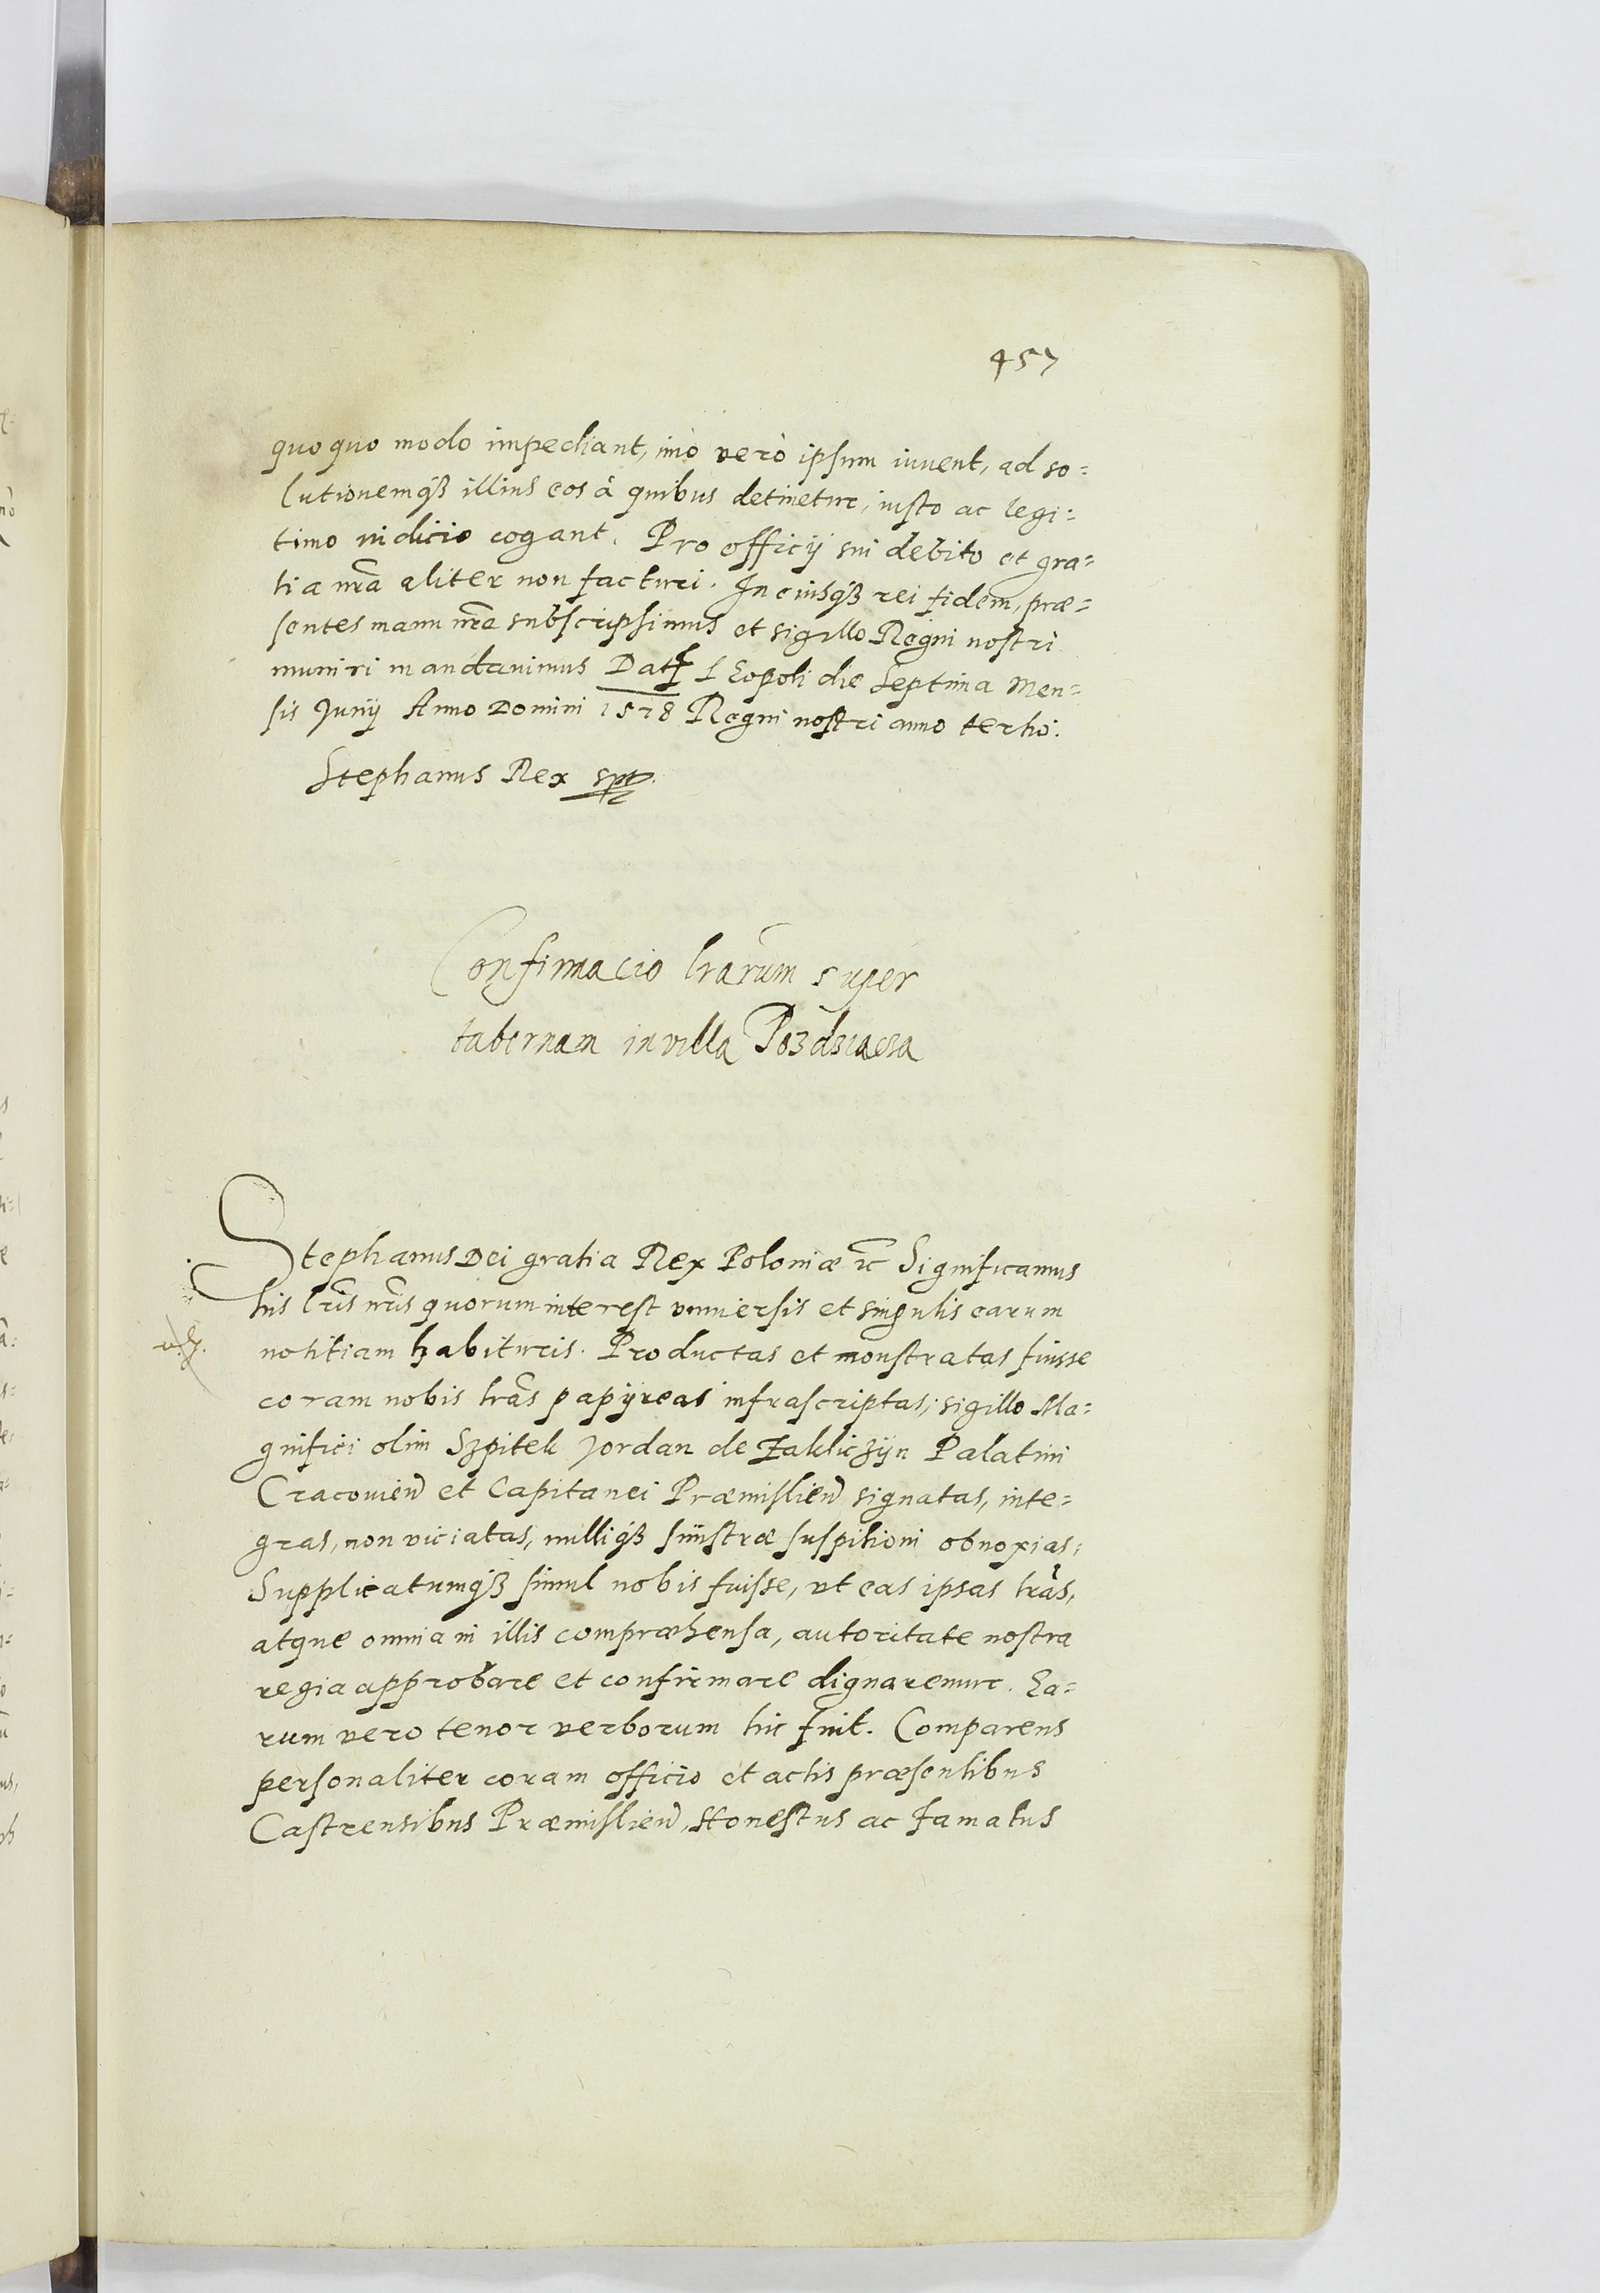 457
quoquo modo impediant, imò verò ipsum iuvent, ad so=
lutionemqß illius eos à quibus detinetur, iusto ac legi=
timo iudicio cogant. Pro officij sui debito et gra=
tia nrã aliter non facturi. In cuiusqß rei fidem, præ=
sentes manu nrã subscripsimus et sigillo Regni nostri
muniri mandavimus Dat Leopoli die Septima Men=
sis Junij Anno Domini 1578 Regni nostri anno tertio.
Stephanus Rex
Confirmacio lrarum super
tabernam in villa
Stephanus Dei gratia Rex Poloniæ Significamus
his lris nris quorum interest universis et singulis earum
notitiam habituris. Productas et monstratas fuisse
coram nobis lras papÿreas infrascriptas, sigillo Ma=
gnifici olim Szpitek Jordan de Zakliczÿn Palatini
Cracovieñ et Capitanei Præmislieñ signatas, inte=
gras, non viciatas, nulliqß sinistræ suspitioni obnoxias;
Supplicatumqß simul nobis fuisse, vt eas ipsas lras,
atque omnia in illis compræhensa, autoritate nostra
regia approbare et confirmare dignaremur. Ea=
rum vero tenor verborum hic fuit. Comparens
personaliter coram officio et actis præsentibus
Castrensibus Præmislieñ, Honestus ac famatus